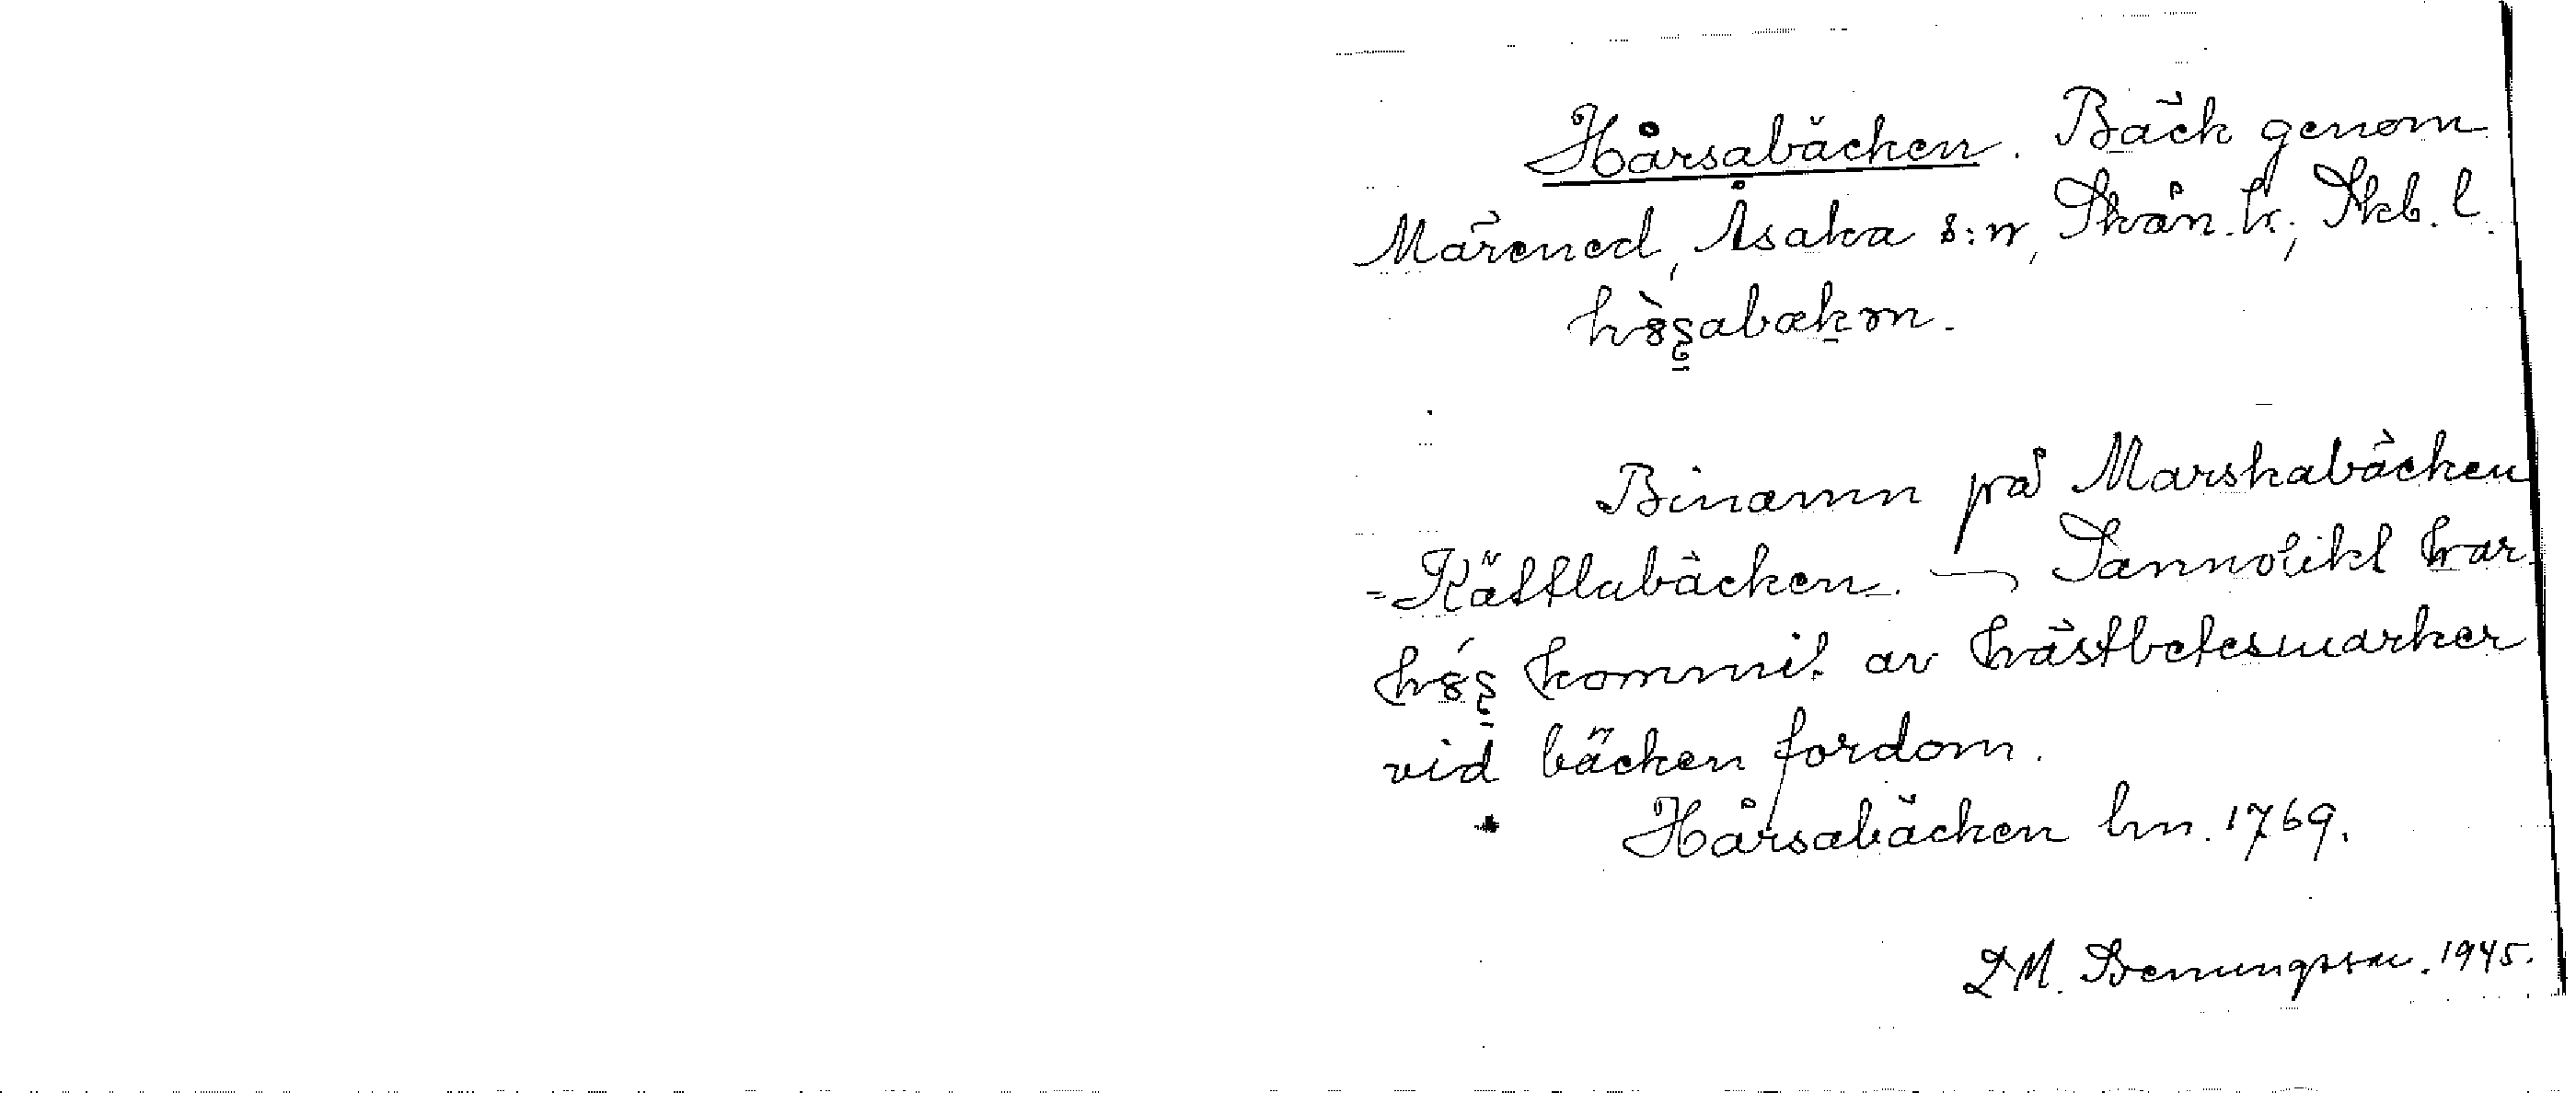 Hårsabäcken. Bäck genom
Marened, Åsaka s:n, Skån. hr., Skb. l.
Binamn på Marskabäcken
- Kättlabäcken. — Sannolikt har
kommit av hästbetesmarker
vid bäcken fordom.
Hårsabäcken hn. 1769.
1945.